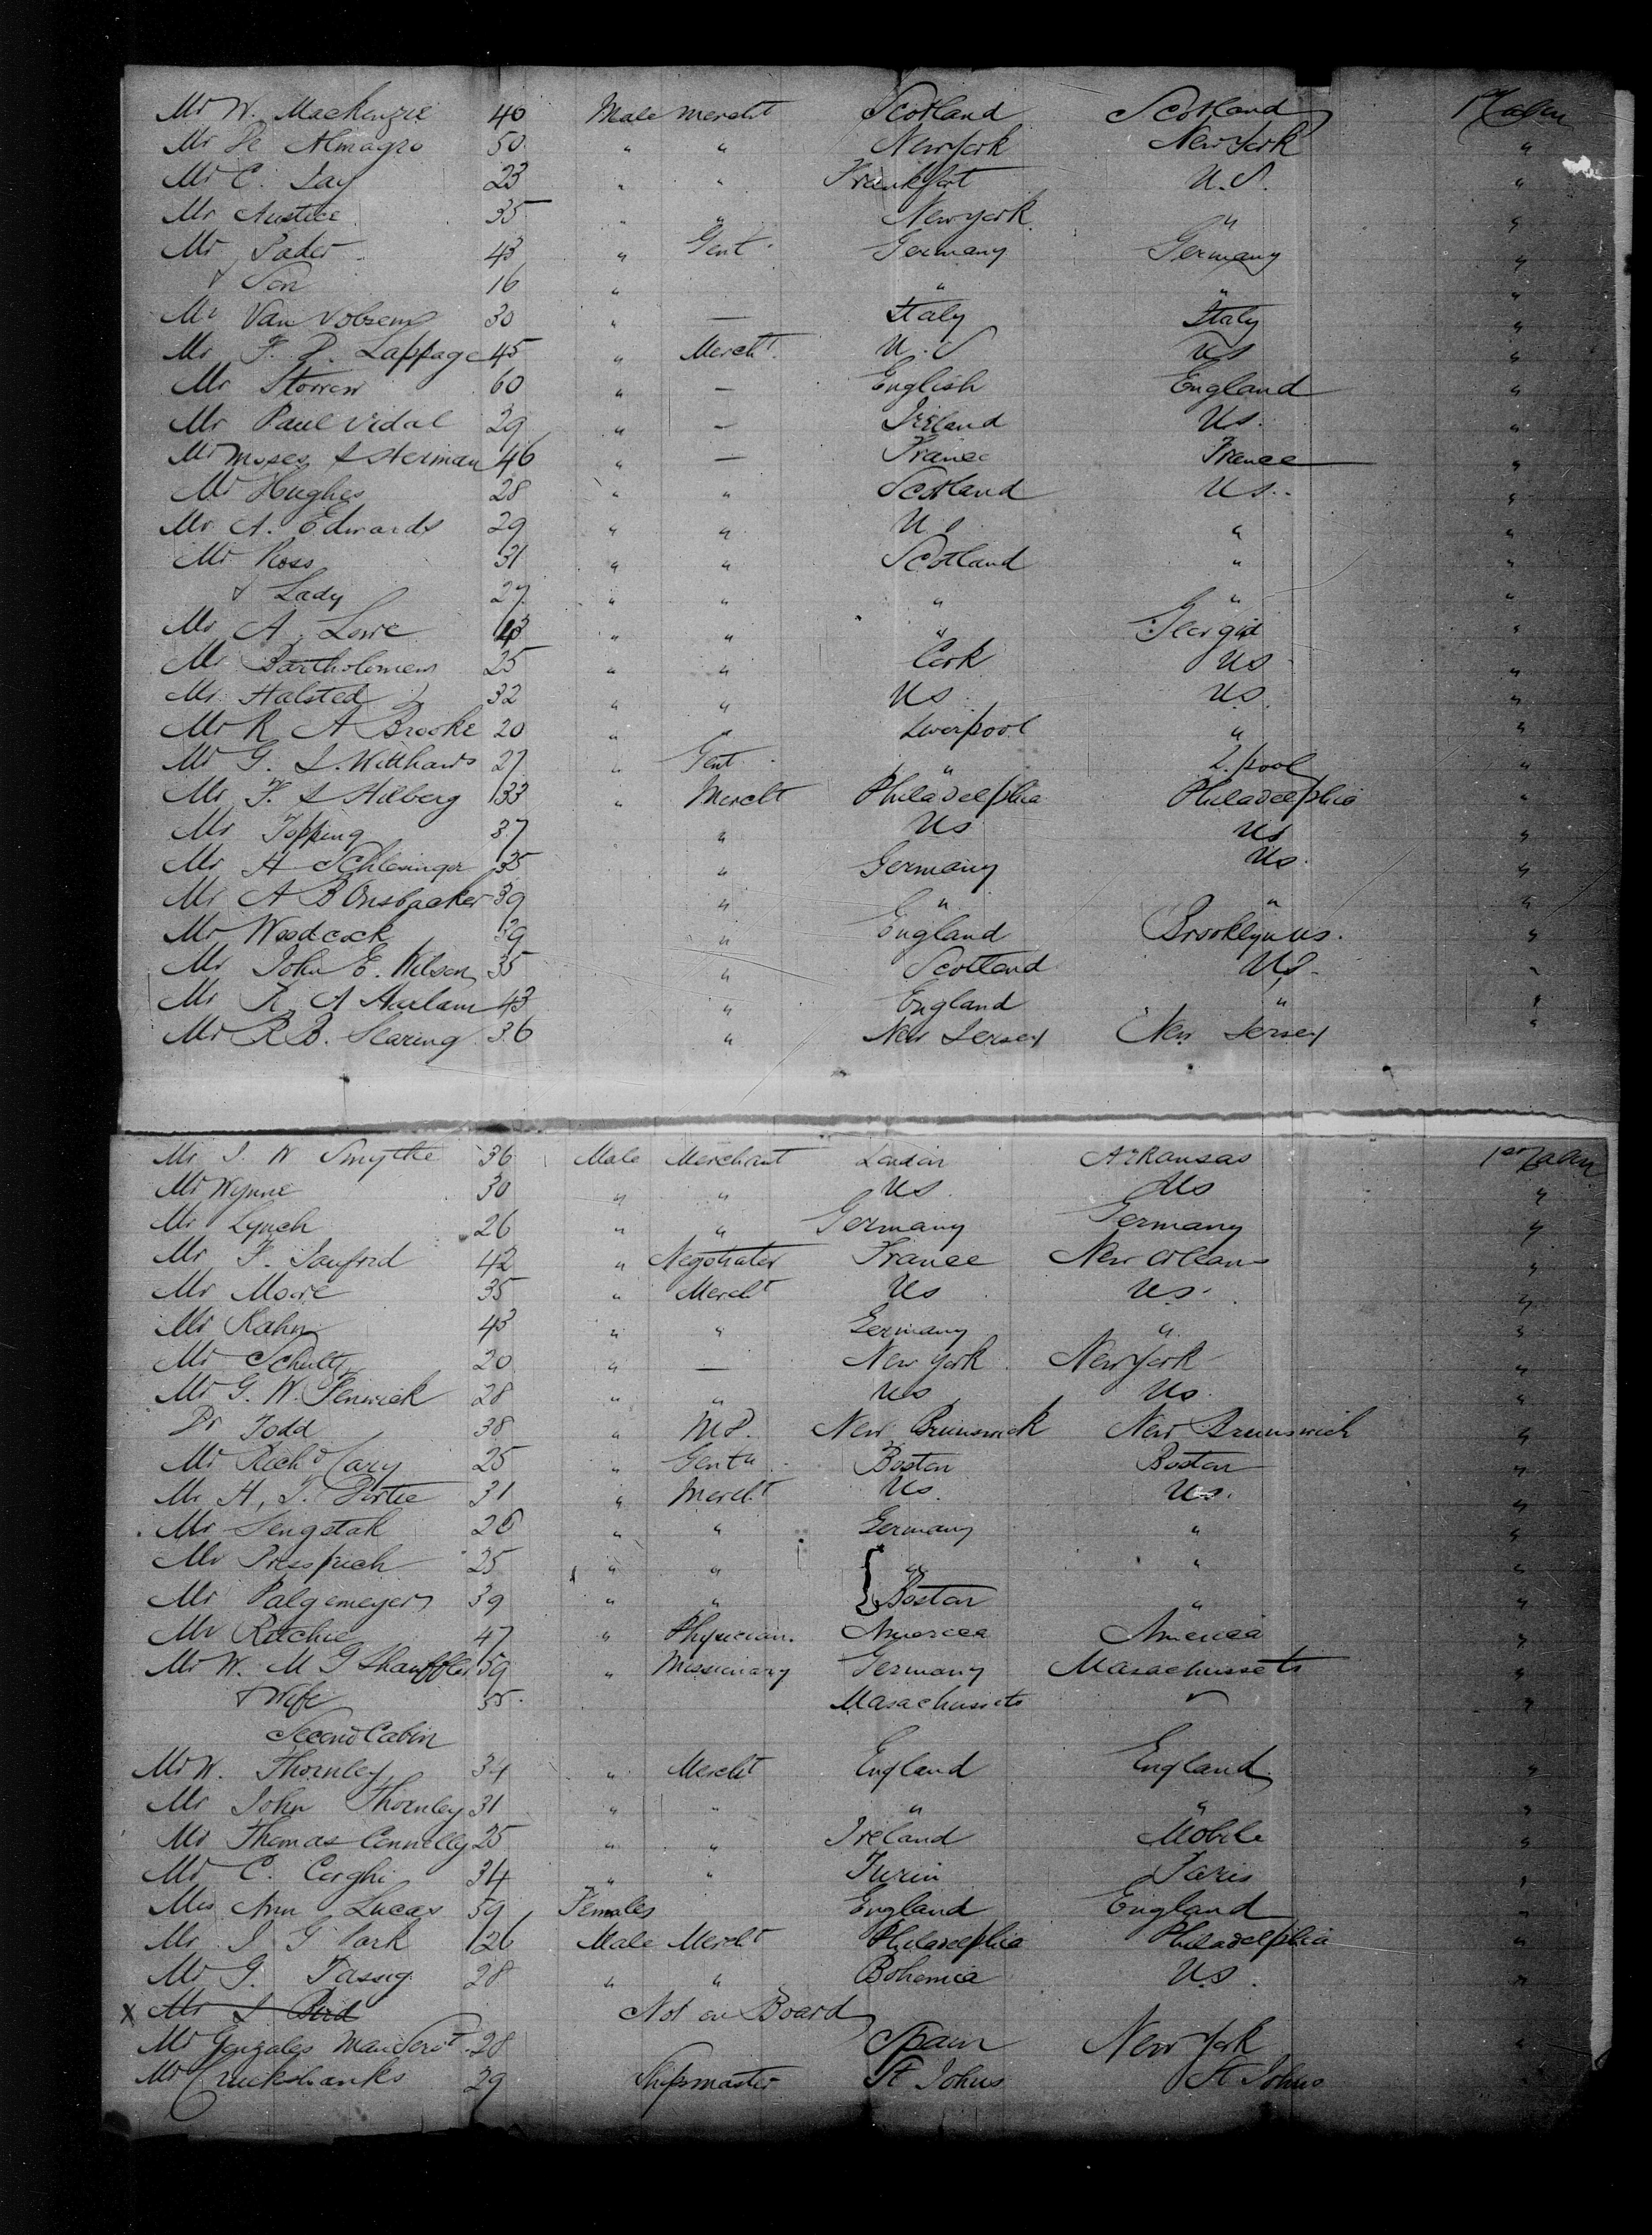 Mr W. Mackenzie 40 Male Mercht Scotland Scotland 1st Cabin
Mr De Almagro 50 " " New York New York "
Mr C. Jay 23 " " Frankfort U.S. "
Mr Austice 35 " " New york " "
Mr Sader 43 " Gent. Germany Germany "
& Son 16 " " " "
Mr Van 30 " — Italy Italy "
Mr F. D. Lappage 45 " Mercht. U.S US "
Mr Storrow 60 " — English England "
Mr Paul Vidal 29 " — Ireland Us. "
Mr Moses S Herman 46 " — France France "
Mr Hughes 28 " " Scotland Us. "
Mr A. Edwards 29 " " U.S. " "
Mr Ross 31 " " Scotland " "
& Lady 27 " " " " "
Mr A. Lowe " " " Georgia "
Mr Bartholomew 25 " " Cork US "
Mr Halsted 32 " " US. US. "
Mr R A Brooke 20 " " Liverpool " "
Mr G. S. Witthaus 27 " Gent. " L.pool "
Mr F. S Hilberg 33 " Mercht Philadelphia Philadelphia "
Mr Topping 37 " Us Us "
Mr H Schlesinger 35 " Germany Us. "
Mr A B Onsbacker 39 " " " "
Mr Woodcock 39 " England Brooklyn us. "
Mr John E. Wilson 35 " Scotland US. "
Mr R. A Haslam 43 " England " "
Mr R B. Searing 36 " New Jersey New Jersey "
Mr J. W Smythe 36 Male Merchant London Arkansas 1st Cabin
Mr Wynne 30 " " Us. Us "
Mr Lynch 26 " " Germany Germany "
Mr F. Sanford 42 " Negotiater France New Orleans "
Mr Moore 35 " Mercht Us Us. "
Mr Kahn 43 " " Germany " "
Mr Schultz 20 " — New York New York "
Mr G. W. Fenwick 28 " " Us Us. "
Dr Todd 38 " M D. New Brunswick New Brunswick "
Mr Richd Cary 25 " Gentn. Boston Boston "
Mr H. J. Portie 31 " Mercht Us. Us. "
Mr Sengstak 26 " " Germany " "
Mr Presprich 25 " " " " "
Mr Palgemeyer 39 " " Boston " "
Mr Ritchie 47 " Physician. America America "
Mr W. M G Shauffler 59 " Missionary Germany Masachussets "
& Wife 55. Masachussets " "
Second Cabin
Mr W. Thornley 34 " Mercht England England "
Mr John Thornley 31 " " " " "
Mr Thomas Connelly 25 " " Ireland Mobile "
Mr C. Corghi 34 " " Turin Paris "
Mrs Ann Lucas 59 Females England England "
Mr J G Park 26 Male Mercht Philadelphia Philadelphia "
Mr G. Tassig 28 " " Bohemia U.S. "
X Mr S Bird Not on Board
Mr Gonzales 28 Spain New York "
Mr Cruickshanks 29 Shipmaster St Johns St Johns "